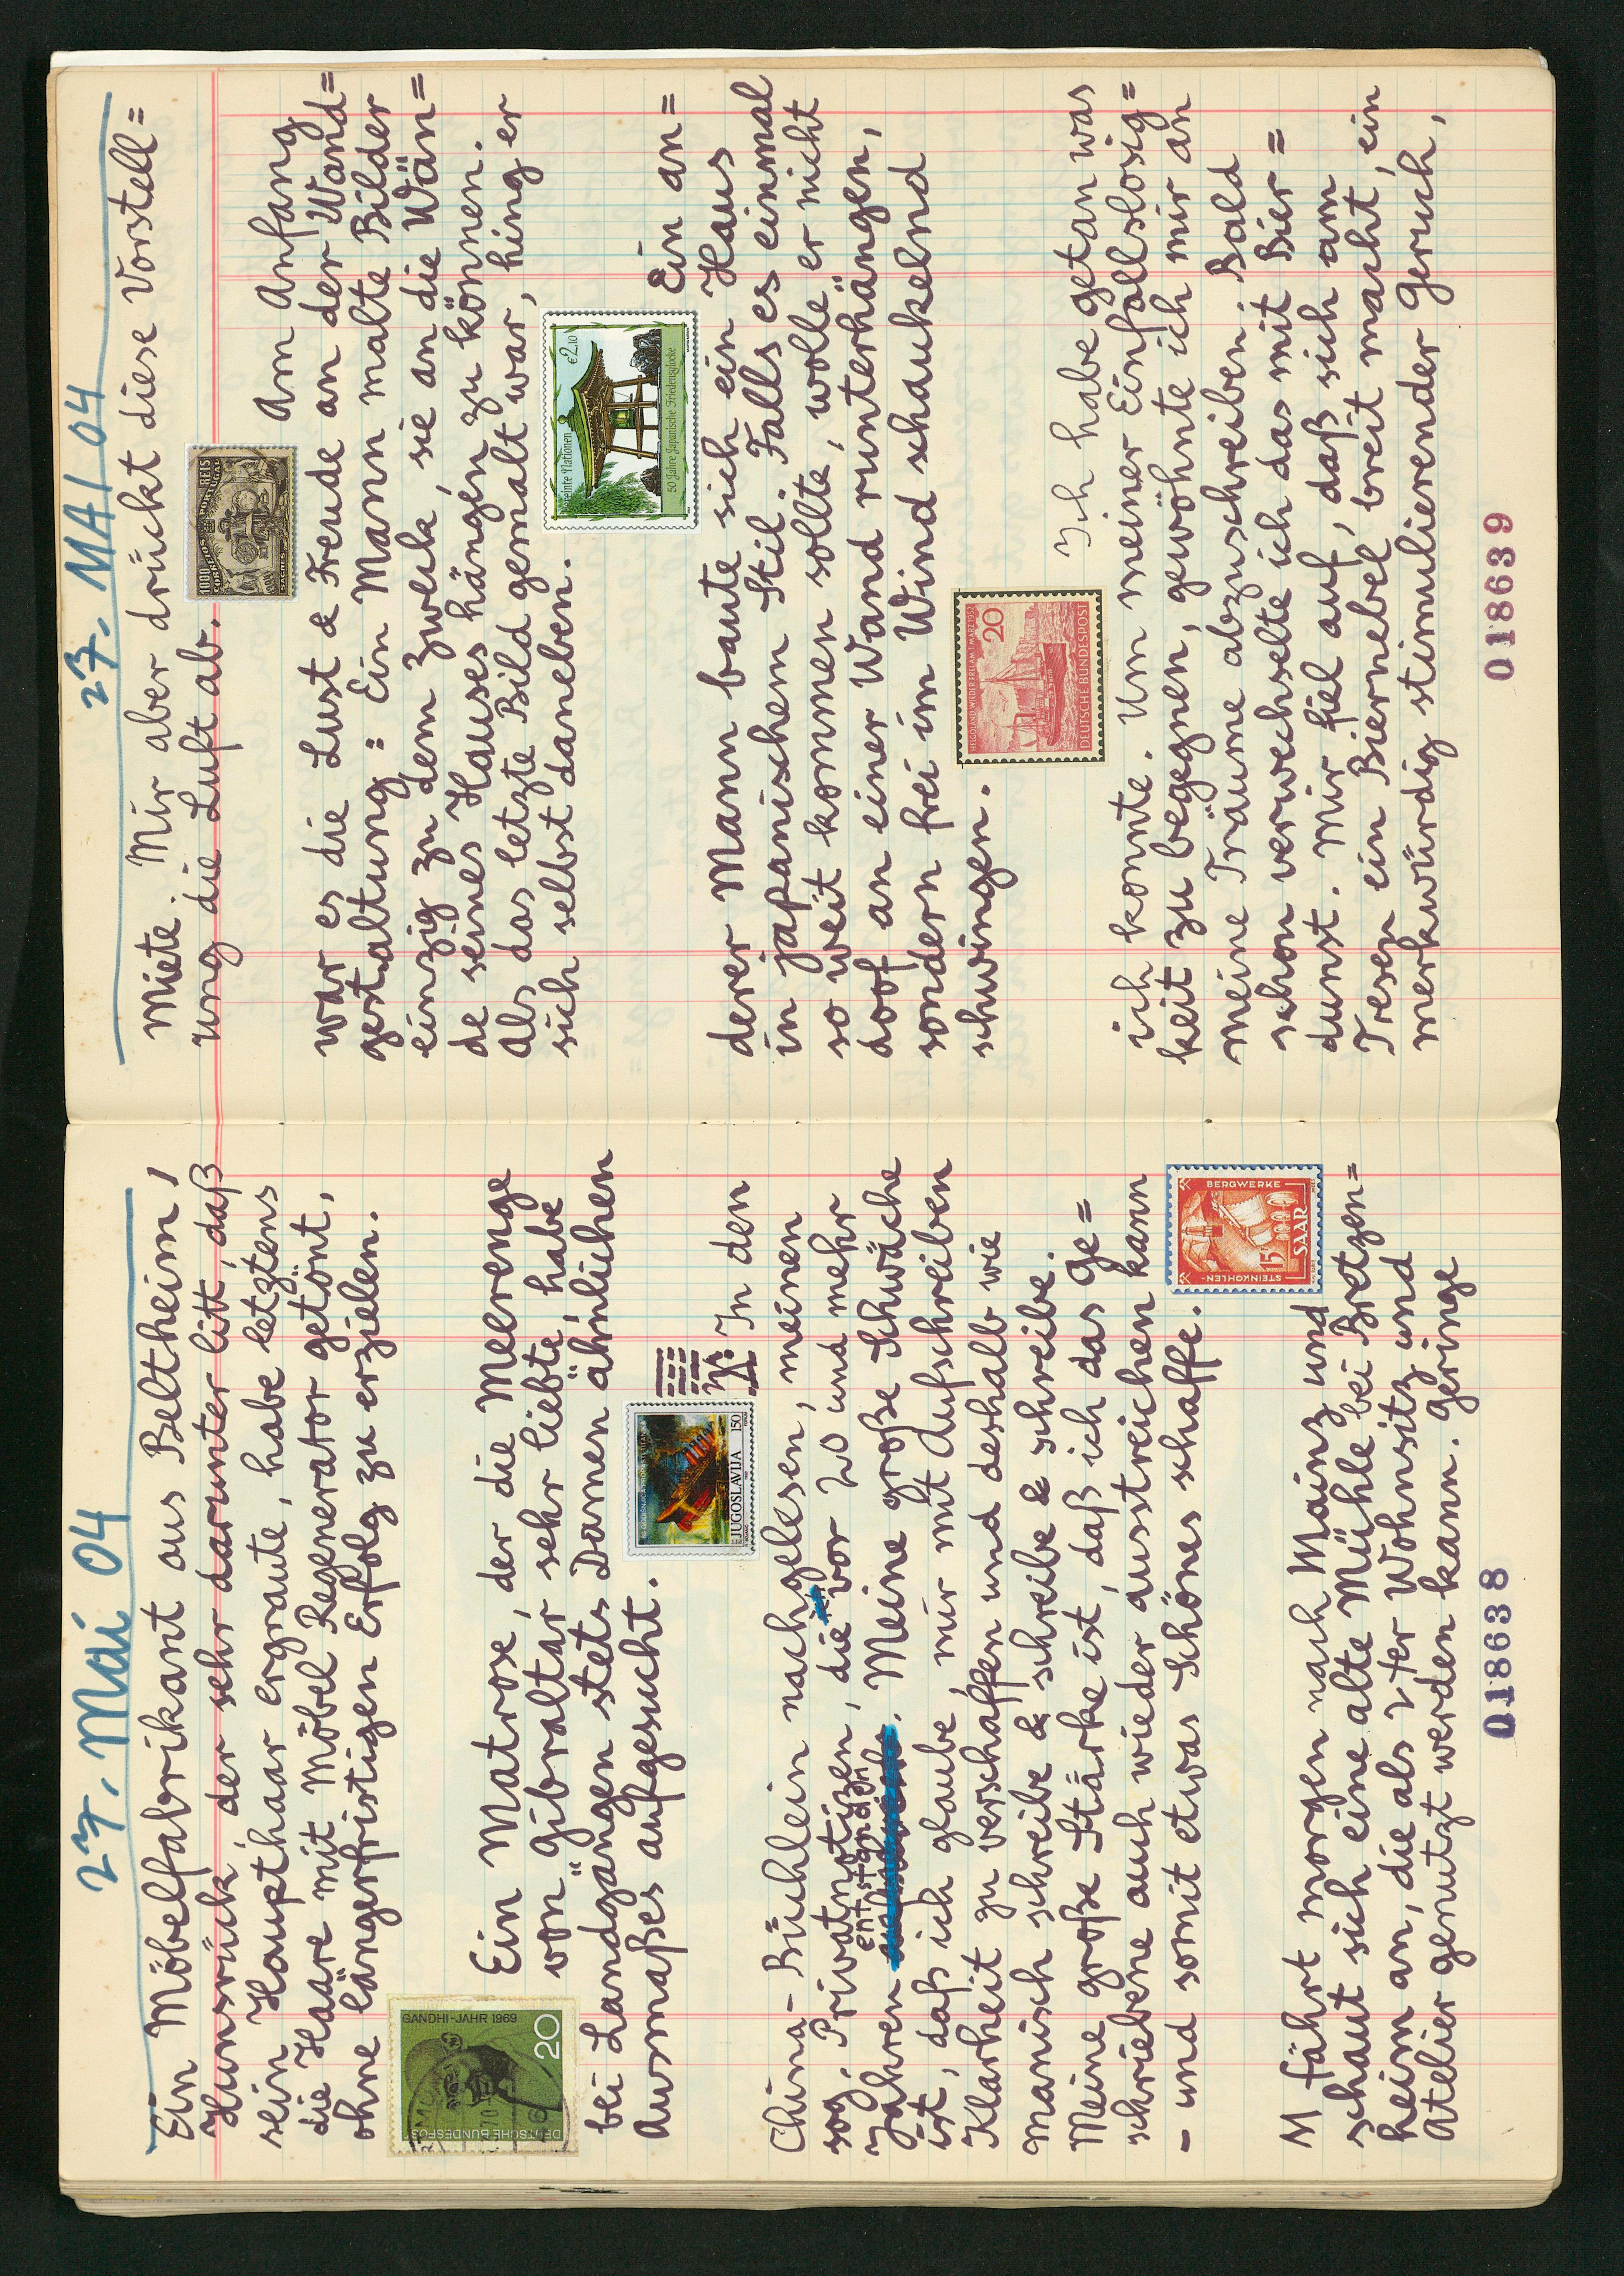 27. Mai 04
Ein Möbelfabrikant aus Beltheim /
Hunsrück, der sehr darunter litt, daß
sein Haupthaar ergraute, habe letztens
die Haare mit Möbel Regenerator getönt,
ohne längerfristigen Erfolg zu erzielen.
GANDHI-JAHR 1969
20
DEUTSCHE BUNDESPOST
Ein Matrose, der die Meerenge
von Gibraltar sehr liebte, habe
bei Landgängen stets Damen ähnlichen
Ausmaßes aufgesucht.
JUGOSLAVIJA 150
In den
China-Büchlein nachgelesen, meinen
sog. Privatnotizen, die vor 20 und mehr
Jahren entstanden. Meine große Schwäche
ist, daß ich glaube, nur mit Aufschreiben
Klarheit zu verschaffen und deshalb wie
manisch schreibe & schreibe & schreibe.
Meine große Stärke ist, daß ich das Ge=
schriebene auch wieder ausstreichen kann
- und somit etwas Schönes schaffe.
STEINKOHLEN-
BERGWERKE
15F
SAAR
M fährt morgen nach Mainz und
schaut sich eine alte Mühle bei Bretzen=
heim an, die als 2ter Wohnsitz und
Atelier genutzt werden kann. Geringe
018638
27. MAI 04
Miete. Mir aber drückt diese Vorstell=
ung die Luft ab.
1000 REIS
CORREIOS
Am Anfang
war es die Lust & Freude an der Wand=
gestaltung: Ein Mann malte Bilder
einzig zu dem Zweck, sie an die Wän=
de seines Hauses hängen zu können.
Als das letzte Bild gemalt war, hing er
sich selbst daneben.
Vereinte Nationen
€2,10
50 Jahre Japanische Friedensglocke
Ein an=
derer Mann baute sich ein Haus
in japanischem Stil. Falls es einmal
so weit kommen sollte, wolle er nicht
doof an einer Wand runterhängen,
sondern frei im Wind schaukelnd
schwingen.
HELGOLAND WIEDER FREI AM 1. MÄRZ 1952
20
DEUTSCHE BUNDESPOST
Ich habe getan was
ich konnte. Um meiner Einfallslosig=
keit zu begegnen, gewöhnte ich mir an
meine Träume abzuschreiben. Bald
schon verwechselte ich das mit Bier=
dunst. Mir fiel auf, daß sich am
Tresen ein Biernebel breit macht, ein
merkwürdig stimulierender Geruch,
018639